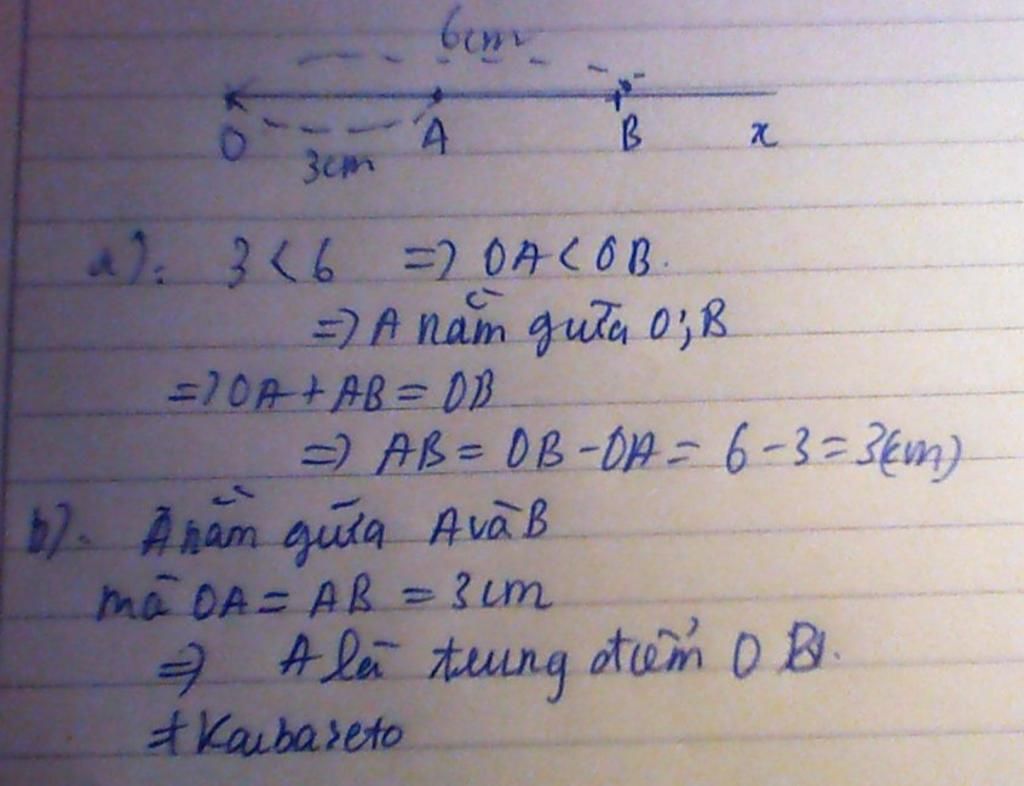 6cm
O A B x
3cm
a). 3 < 6 => OA < OB.
=> A nằm giữa O; B
=> OA + AB = OB
=> AB = OB - OA = 6 - 3 = 3(cm)
b). A nằm giữa A và B
mà OA = AB = 3cm
=> A là trung điểm OB.